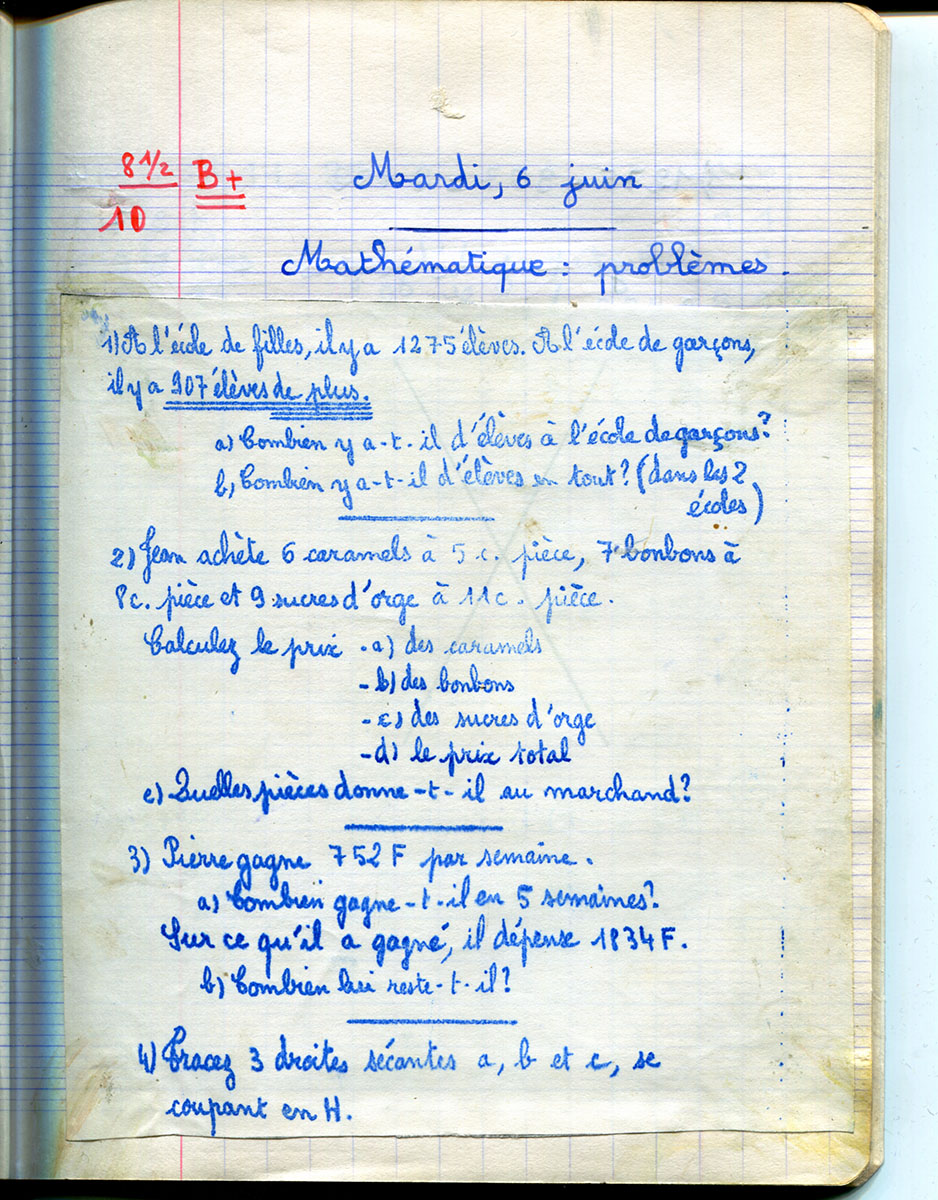 8 1/2
10
B+
Mardi, 6 juin
Mathématique : problèmes.
1) A l'école de filles, il y a 1275 élèves. A l'école de garçons,
il y a 907 élèves de plus.
a) Combien y a-t-il d'élèves à l'école de garçons?
b) Combien y a-t-il d'élèves en tout? (dans les 2
écoles)
2) Jean achète 6 caramels à 5 c. pièce, 7 bonbons à
8c. pièce et 9 sucres d'orge à 11c. pièce.
Calculez le prix - a) des caramels
- b) des bonbons
- c) des sucres d'orge
- d) le prix total
e) Quelles pièces donne-t-il au marchand?
3) Pierre gagne 752 F par semaine.
a) Combien gagne-t-il en 5 semaines?
Sur ce qu'il a gagné, il dépense 1834 F.
b) Combien lui reste-t-il?
4) Tracez 3 droites sécantes a, b et c, se
coupant en H.